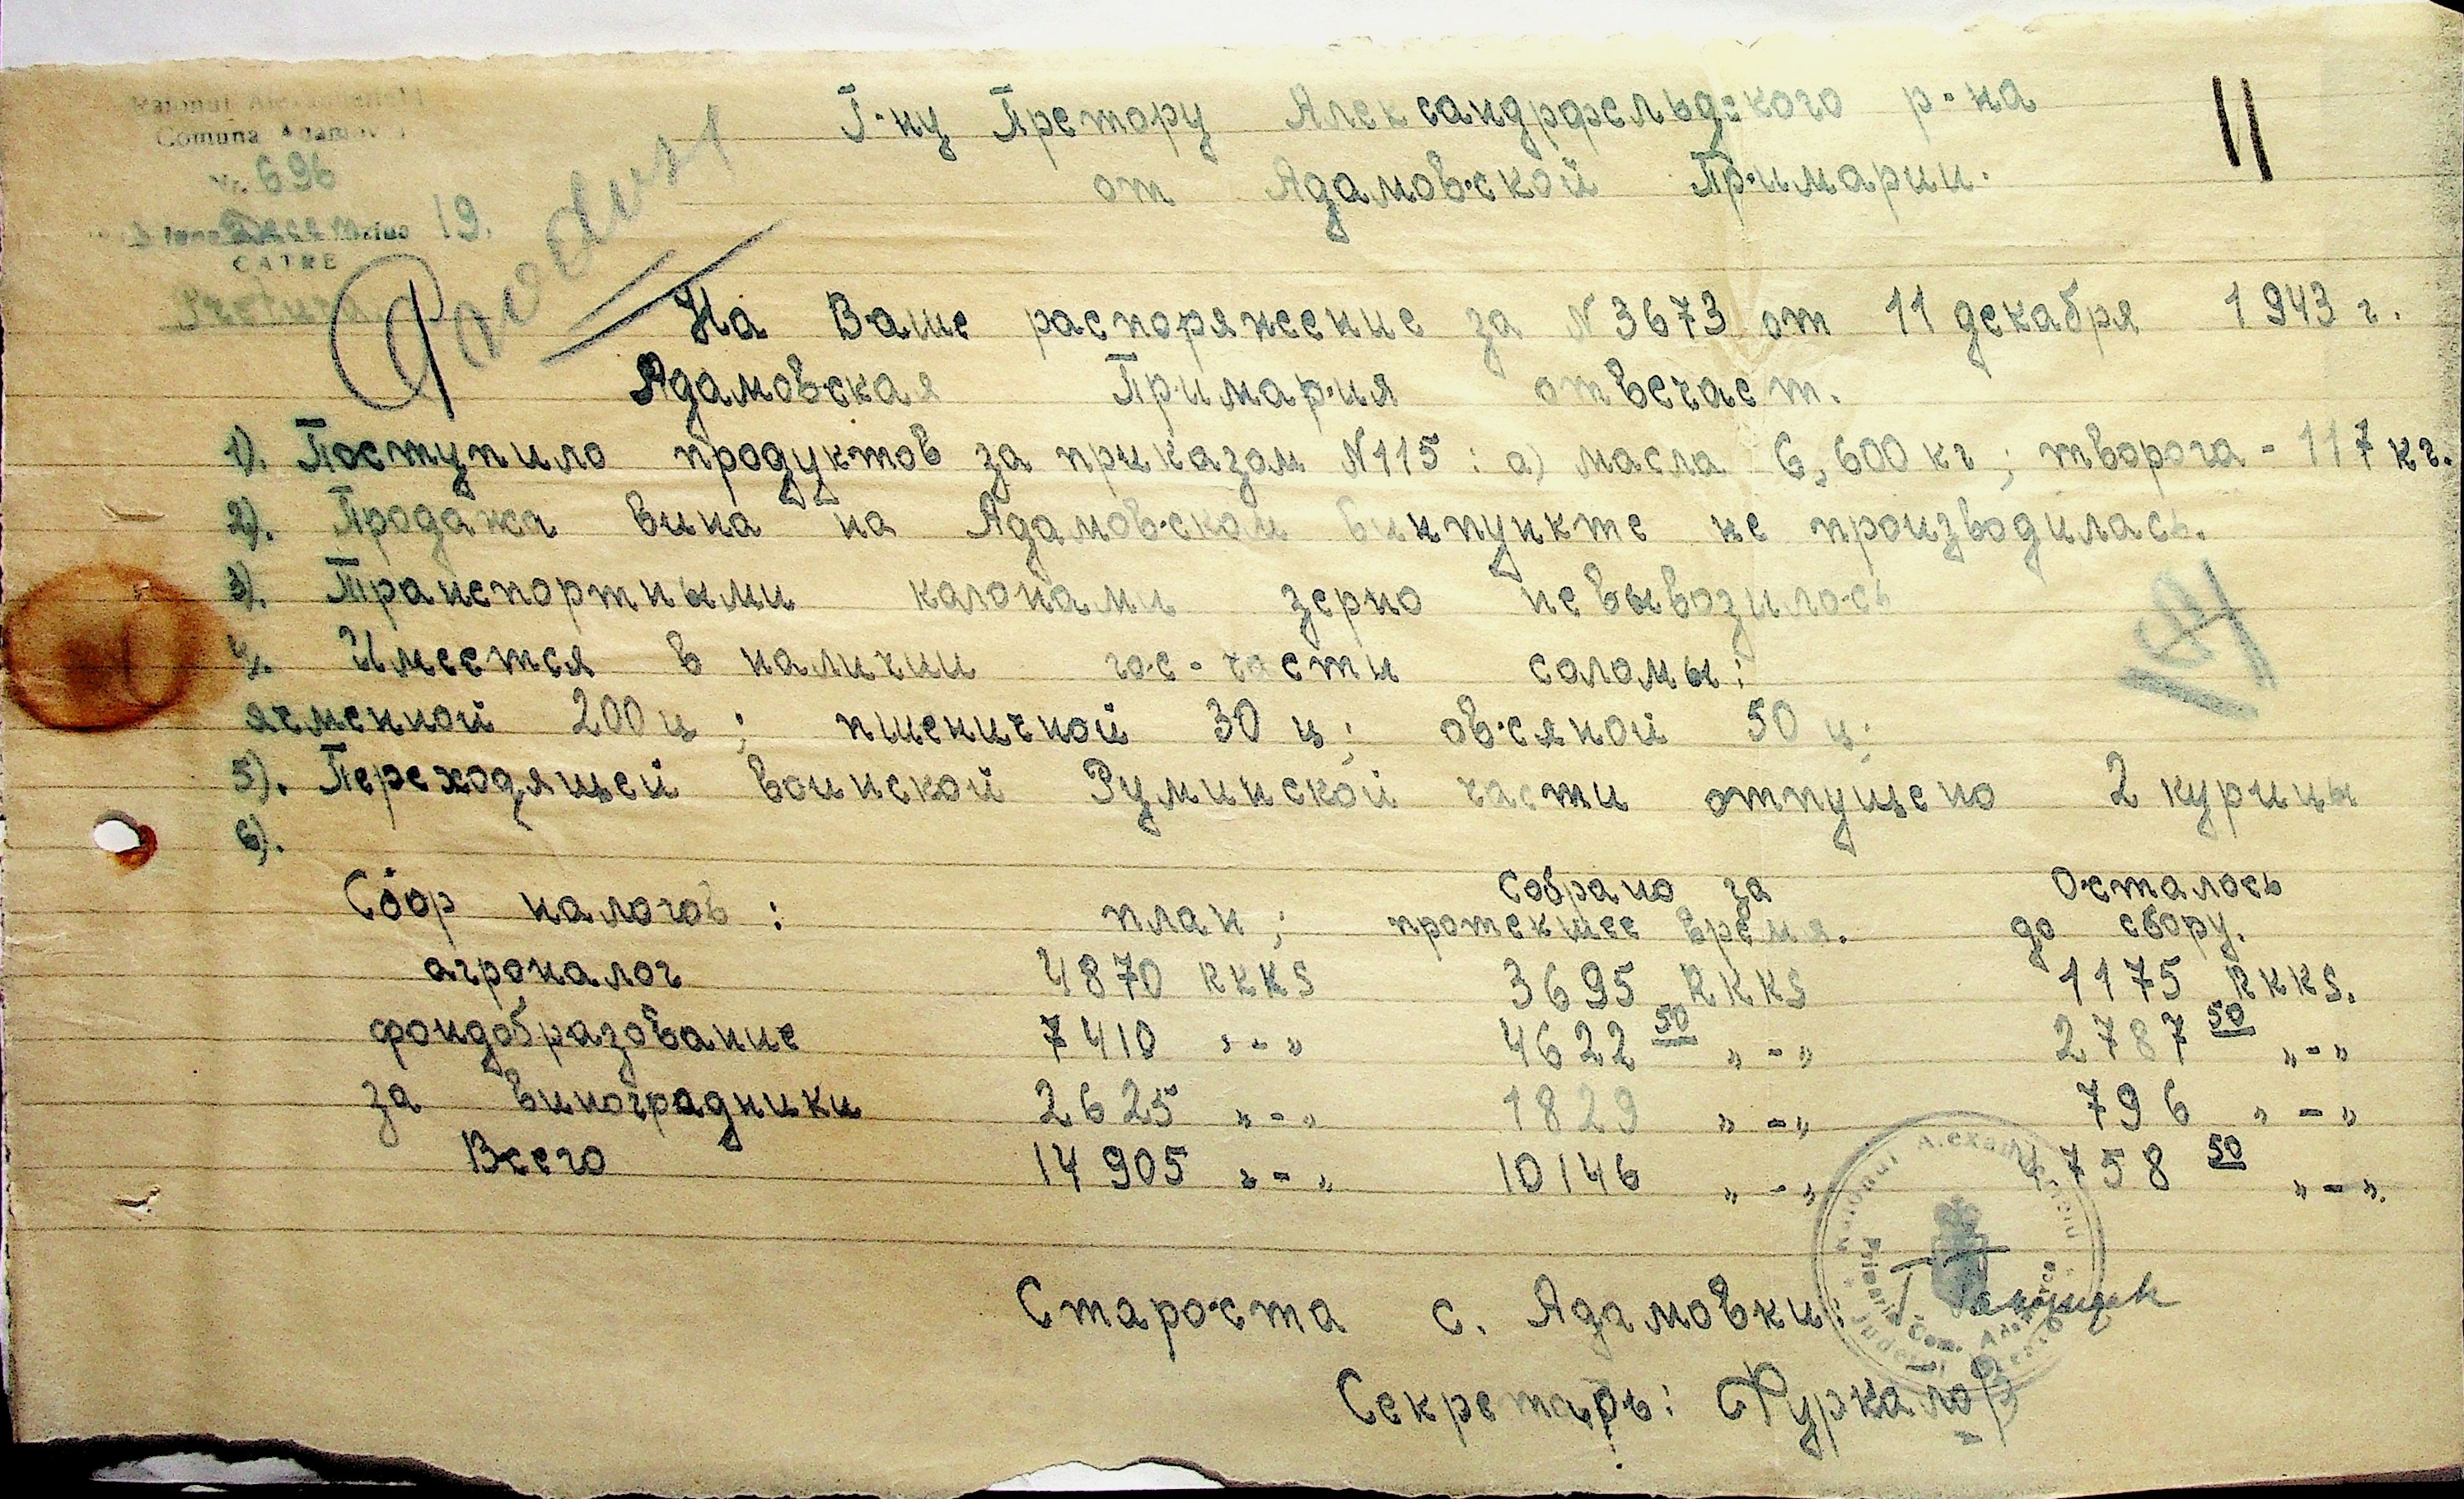 Raionul Alexanderfeld
Comuna Adamovca
Nr. 696
19.
CATRE
Pretura
11
Г-ну Претору Александрфельдского р-на
от Адамовской Примарии.
На Ваше распоряжение за N 3673 от 11 декабря 1943 г.
Адамовская Примария отвечает.
1). Поступило продуктов за приказом N115: а) масла 6,600 кг; творога - 117 кг.
2). Продажа вина на Адамовском винпункте не производилась.
3). Транспортными калонами зерно невывозилось
4). Имеется в наличии гос-части соломы:
ячменной 200 ц; пшеничной 30 ц; овсяной 50 ц;
5). Переходящей воинской Руминской части отпущено 2 курицы
6).
Сбор налогов: план; Собрано за протекшее время. Осталось до сбору.
агроналог 4870 RKKS 3695 RKKS 1175 RKKS.
фондобразование 7410 „-„ 4622 50 „-„ 2787 50 „-„
за виноградники 2625 „-„ 1829 „-„ 796 „-„
Всего 14905 „-„ 10146 „-„ 4758 50 „-„.
Староста с. Адамовки:
Секретарь: Фуркало